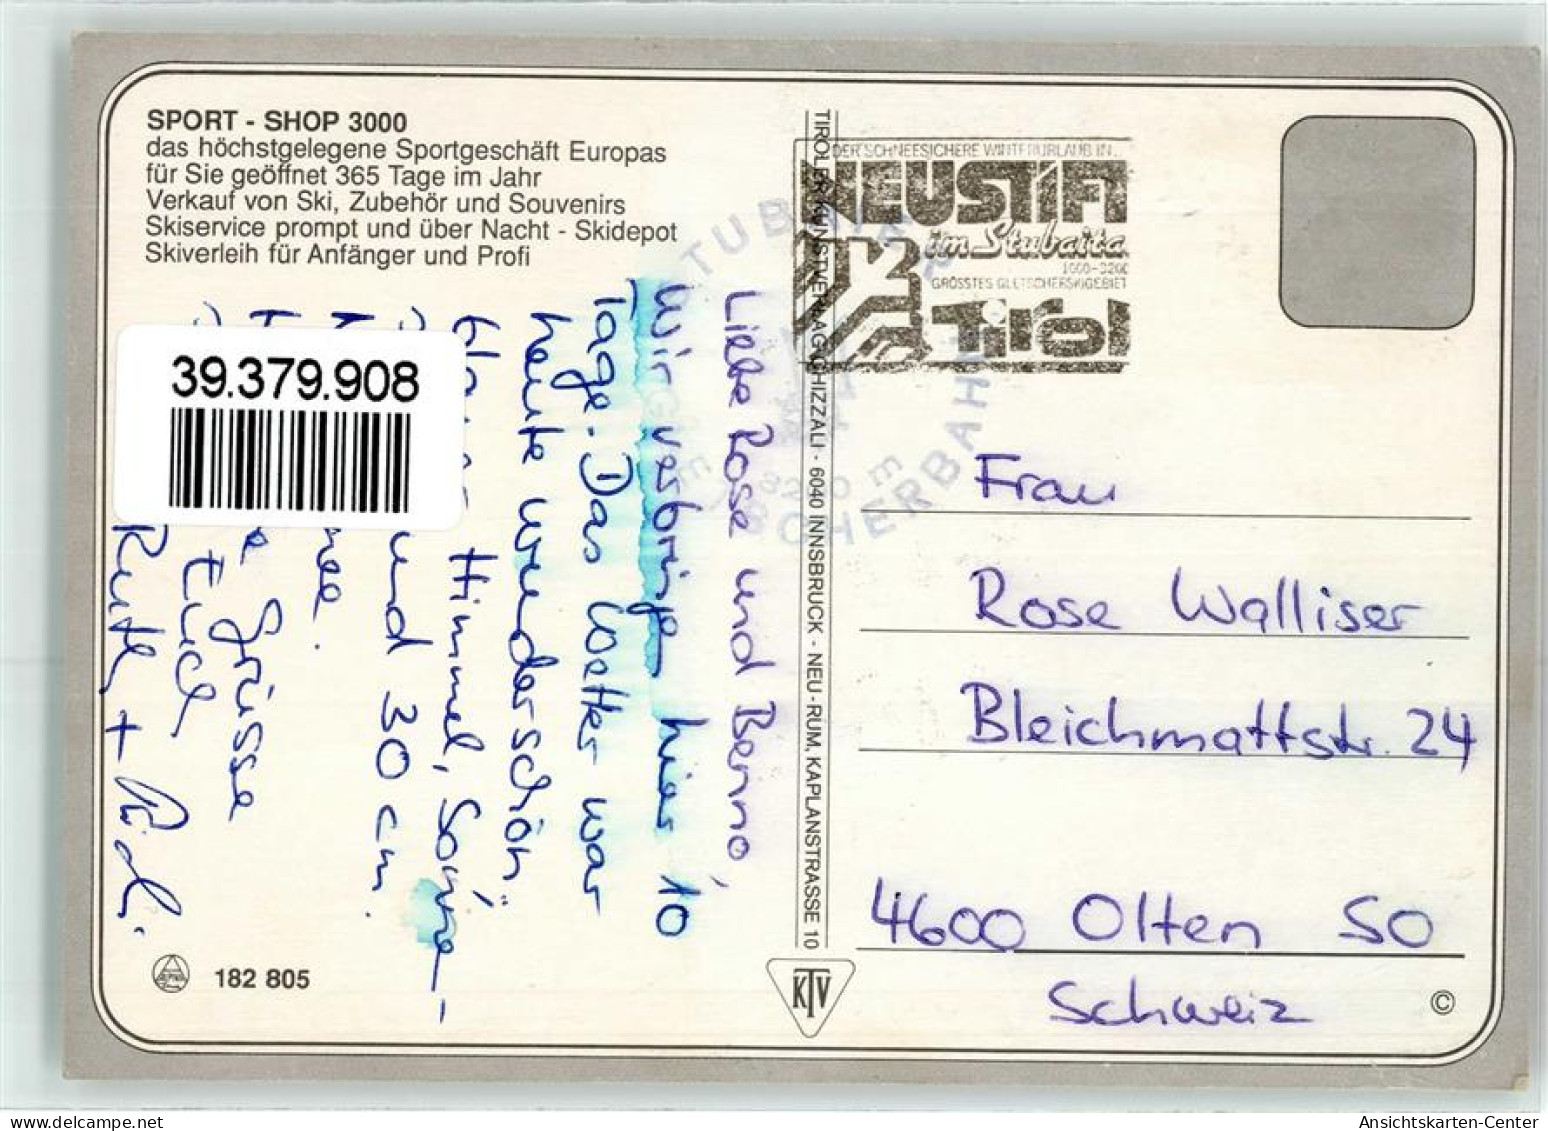 SPORT - SHOP 3000
das höchstgelegene Sportgeschäft Europas
für Sie geöffnet 365 Tage im Jahr
Verkauf von Ski, Zubehör und Souvenirs
Skiservice prompt und über Nacht - Skidepot
Skiverleih für Anfänger und Profi
39.379.908
Liebe Rose und Benno,
Wir verbringen hier 10
Tage. Das Wetter war
heute wunderschön
Himmel, Sonne-
und 30 cm
Grüsse
Euch
Ruth +
182 805
TIROLER KUNSTVERLAG CHIZZALI · 6040 INNSBRUCK - NEU-RUM, KAPLANSTRASSE 10
KTV
DER SCHNEESICHERE WINTERURLAUB IN...
NEUSTIFT
im Stubaital
1000-3200
GRÖSSTES GLETSCHERSKIGEBIET
Tirol
Frau
Rose Walliser
Bleichmattstr. 24
4600 Olten SO
Schweiz
©
www.delcampe.net
Ansichtskarten-Center